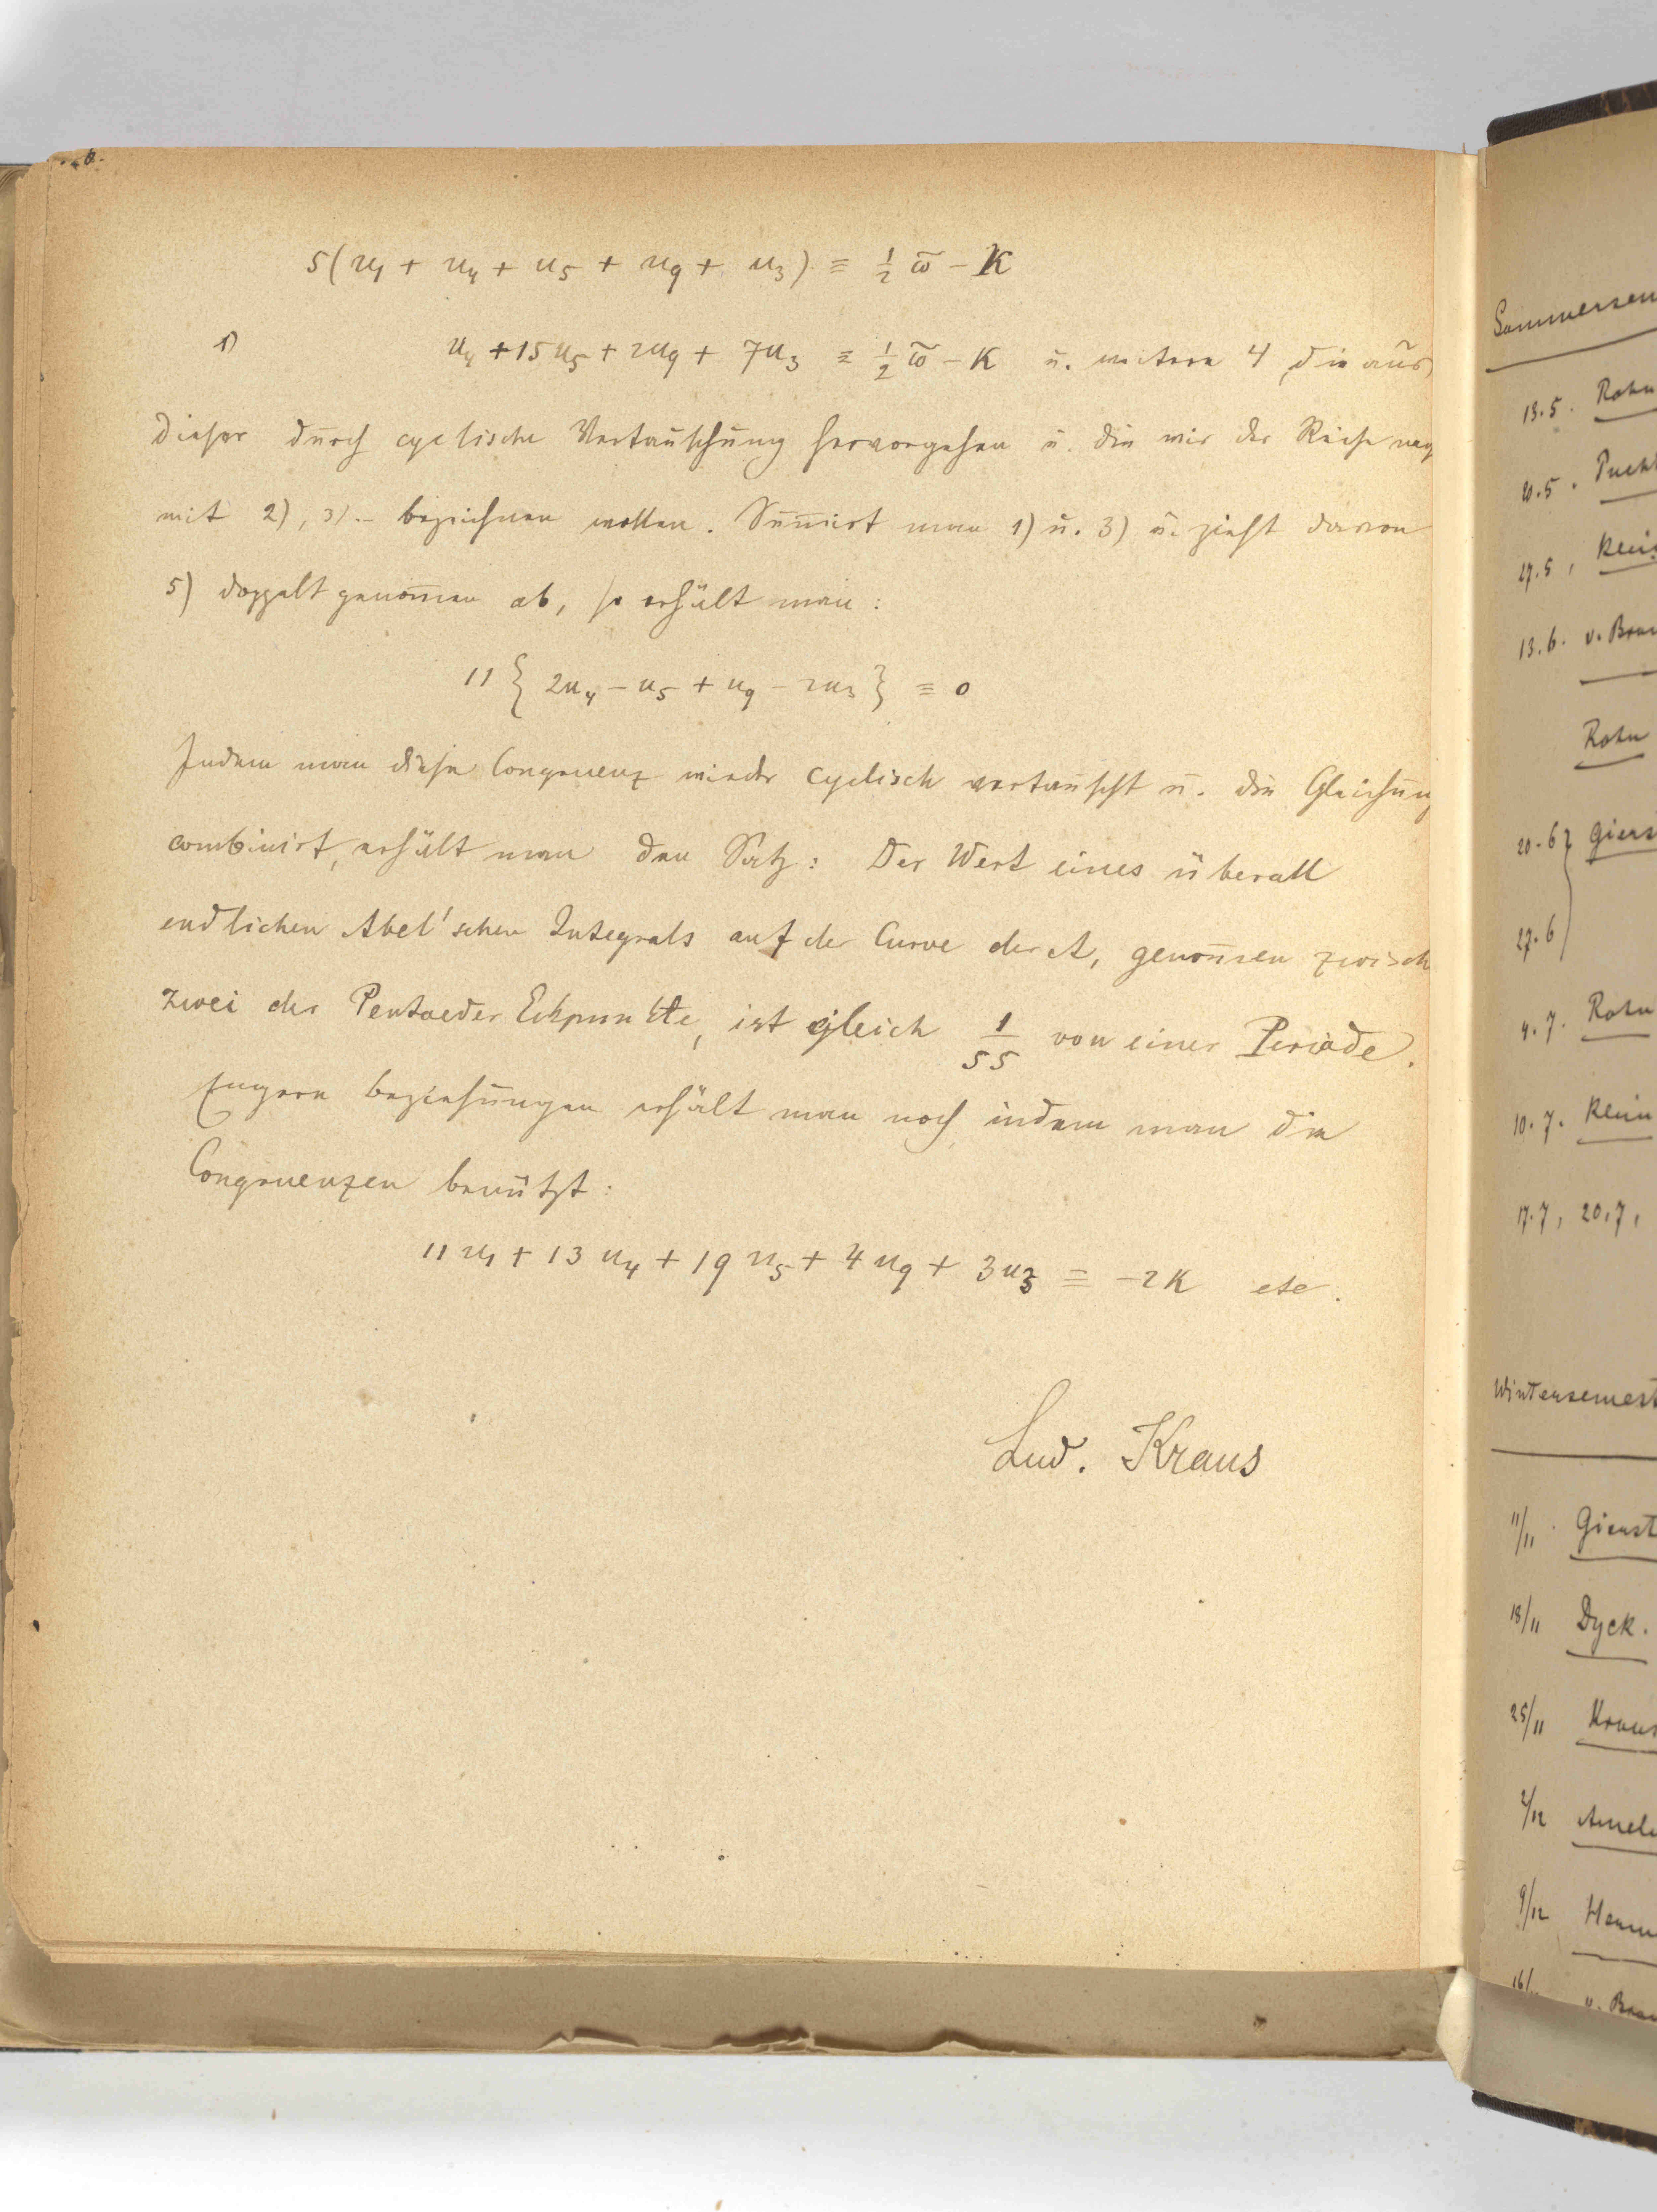 5(u₁ + u₄ + u₅ + u₉ + u₃) ≡ ½ ω̃ – K
1) u₄ + 15u₅ + 2u₉ + 7u₃ ≡ ½ ω̃ – K u. weitere 4, die aus
dieser durch cyclische Vertauschung hervorgehen u. die wir der Reihe nach
mit 2), 3).. bezeichnen wollen. Sum̄irt man 1) u. 3) u. zieht davon
5) doppelt genom̄en ab, so erhält man:
11 { 2u₄ – u₅ + u₉ – 2u₃ } ≡ 0
Indem man diese Congruenz wieder cyclisch vertauscht u. die Gleichung
combinirt, erhält man den Satz: Der Wert eines überall
endlichen Abel'schen Integrals auf der Curve der A, genom̄en zwisch
zwei der Pentaeder Eckpunkte, ist gleich 1/55 von einer Periode.
Engere beziehungen erhält man noch, indem man die
Congruenzen benützt:
11u₁ + 13u₄ + 19u₅ + 4u₉ + 3u₃ ≡ –2K etc.
Lud. Kraus
Sommersem
13.5. Rohn
20.5. Puch
27.5, Klein
13.6. v. Brau
Rohn
20.6 Giers
27.6
4.7. Rohn
10.7. Klein
17.7, 20.7,
Wintersemest
11/11. Gierst
18/11 Dyck.
25/11 Kraus
2/12
9/12
16/ v. Brau